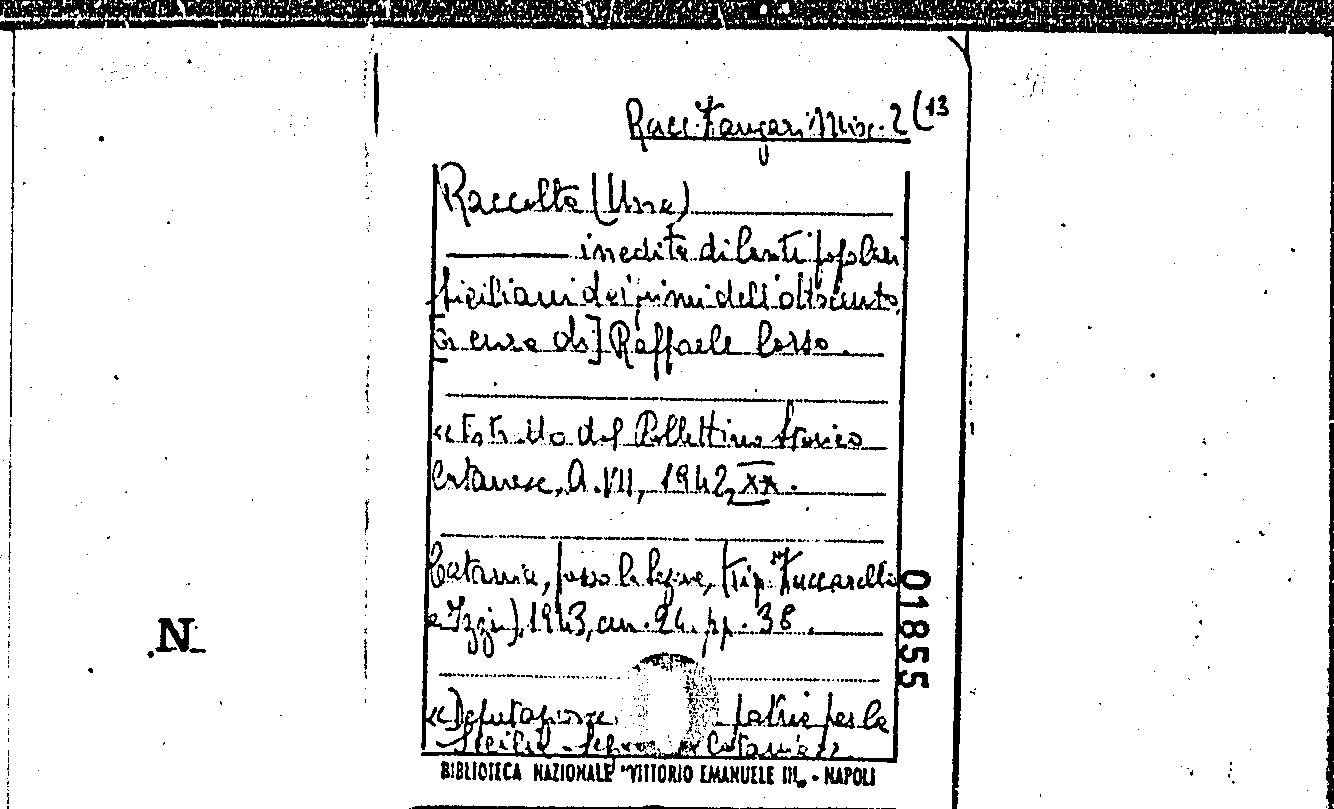 Racc. Zangari Misc. 2 (13
Raccolta (Una)
inedita di Canti popolari
siciliani dei primi dell'ottocento
[a cura di] Raffaele Corso.
Estratto dal Bollettino Storico
Catanese, A. VII, 1942, XX.
Catania, presso la Sezione, (tip. Zuccarello
e Izzi), 1943, cm. 24. pp. 38.
Deputazione patria per la
Sicilia - Catanese.
01855
N
BIBLIOTECA NAZIONALE "VITTORIO EMANUELE III" - NAPOLI